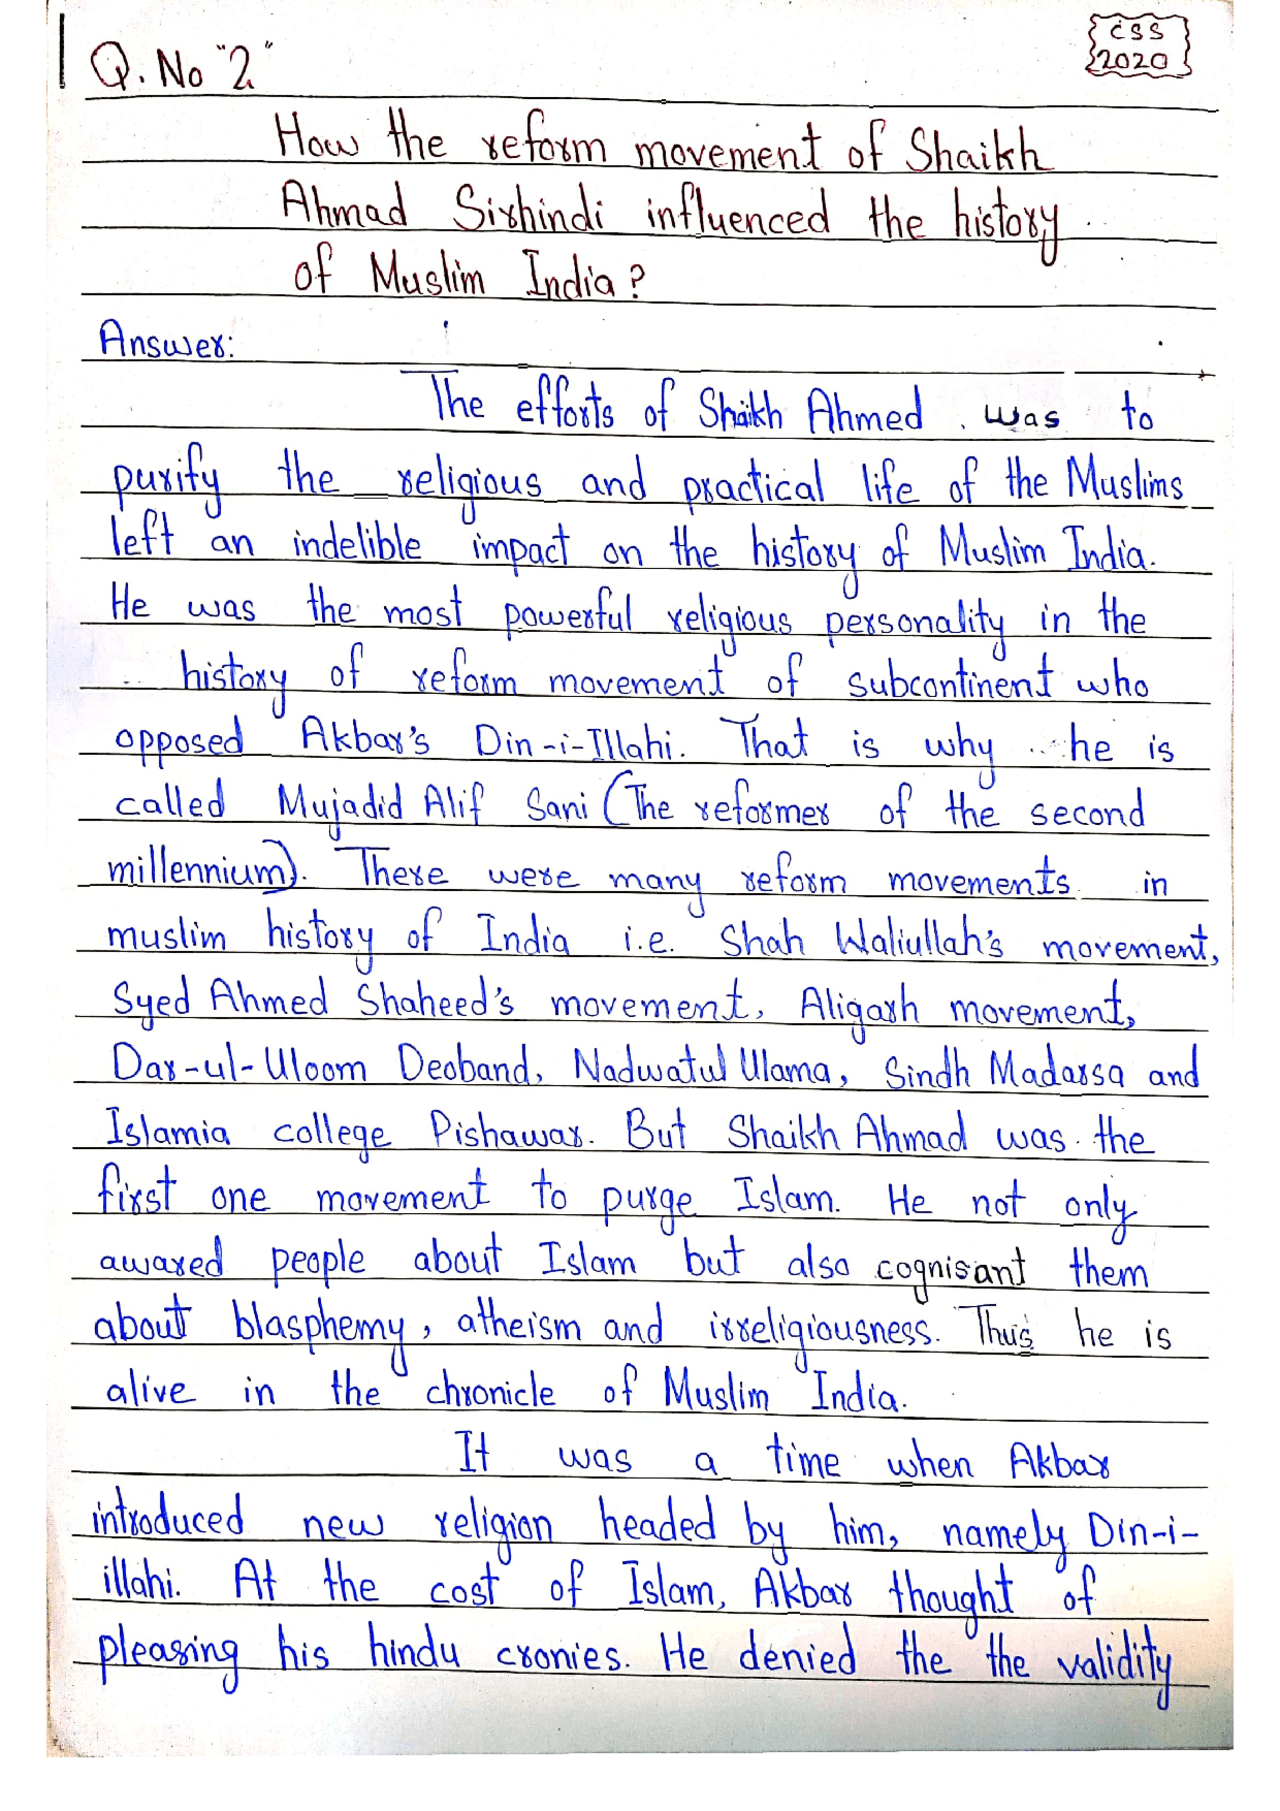 CSS
2020
Q. No "2"
How the reform movement of Shaikh
Ahmad Sirhindi influenced the history
of Muslim India?
Answer:
The efforts of Shaikh Ahmed was to
purify the religious and practical life of the Muslims
left an indelible impact on the history of Muslim India.
He was the most powerful religious personality in the
history of reform movement of subcontinent who
opposed Akbar's Din-i-Illahi. That is why he is
called Mujadid Alif Sani (The reformer of the second
millennium). There were many reform movements in
muslim history of India i.e. Shah Waliullah's movement,
Syed Ahmed Shaheed's movement, Aligarh movement,
Dar-ul-Uloom Deoband, Nadwatul Ulama, Sindh Madarsa and
Islamia college Pishawar. But Shaikh Ahmad was the
first one movement to purge Islam. He not only
awared people about Islam but also cognisant them
about blasphemy, atheism and irreligiousness. Thus he is
alive in the chronicle of Muslim India.
It was a time when Akbar
introduced new religion headed by him, namely Din-i-
illahi. At the cost of Islam, Akbar thought of
pleasing his hindu cronies. He denied the the validity